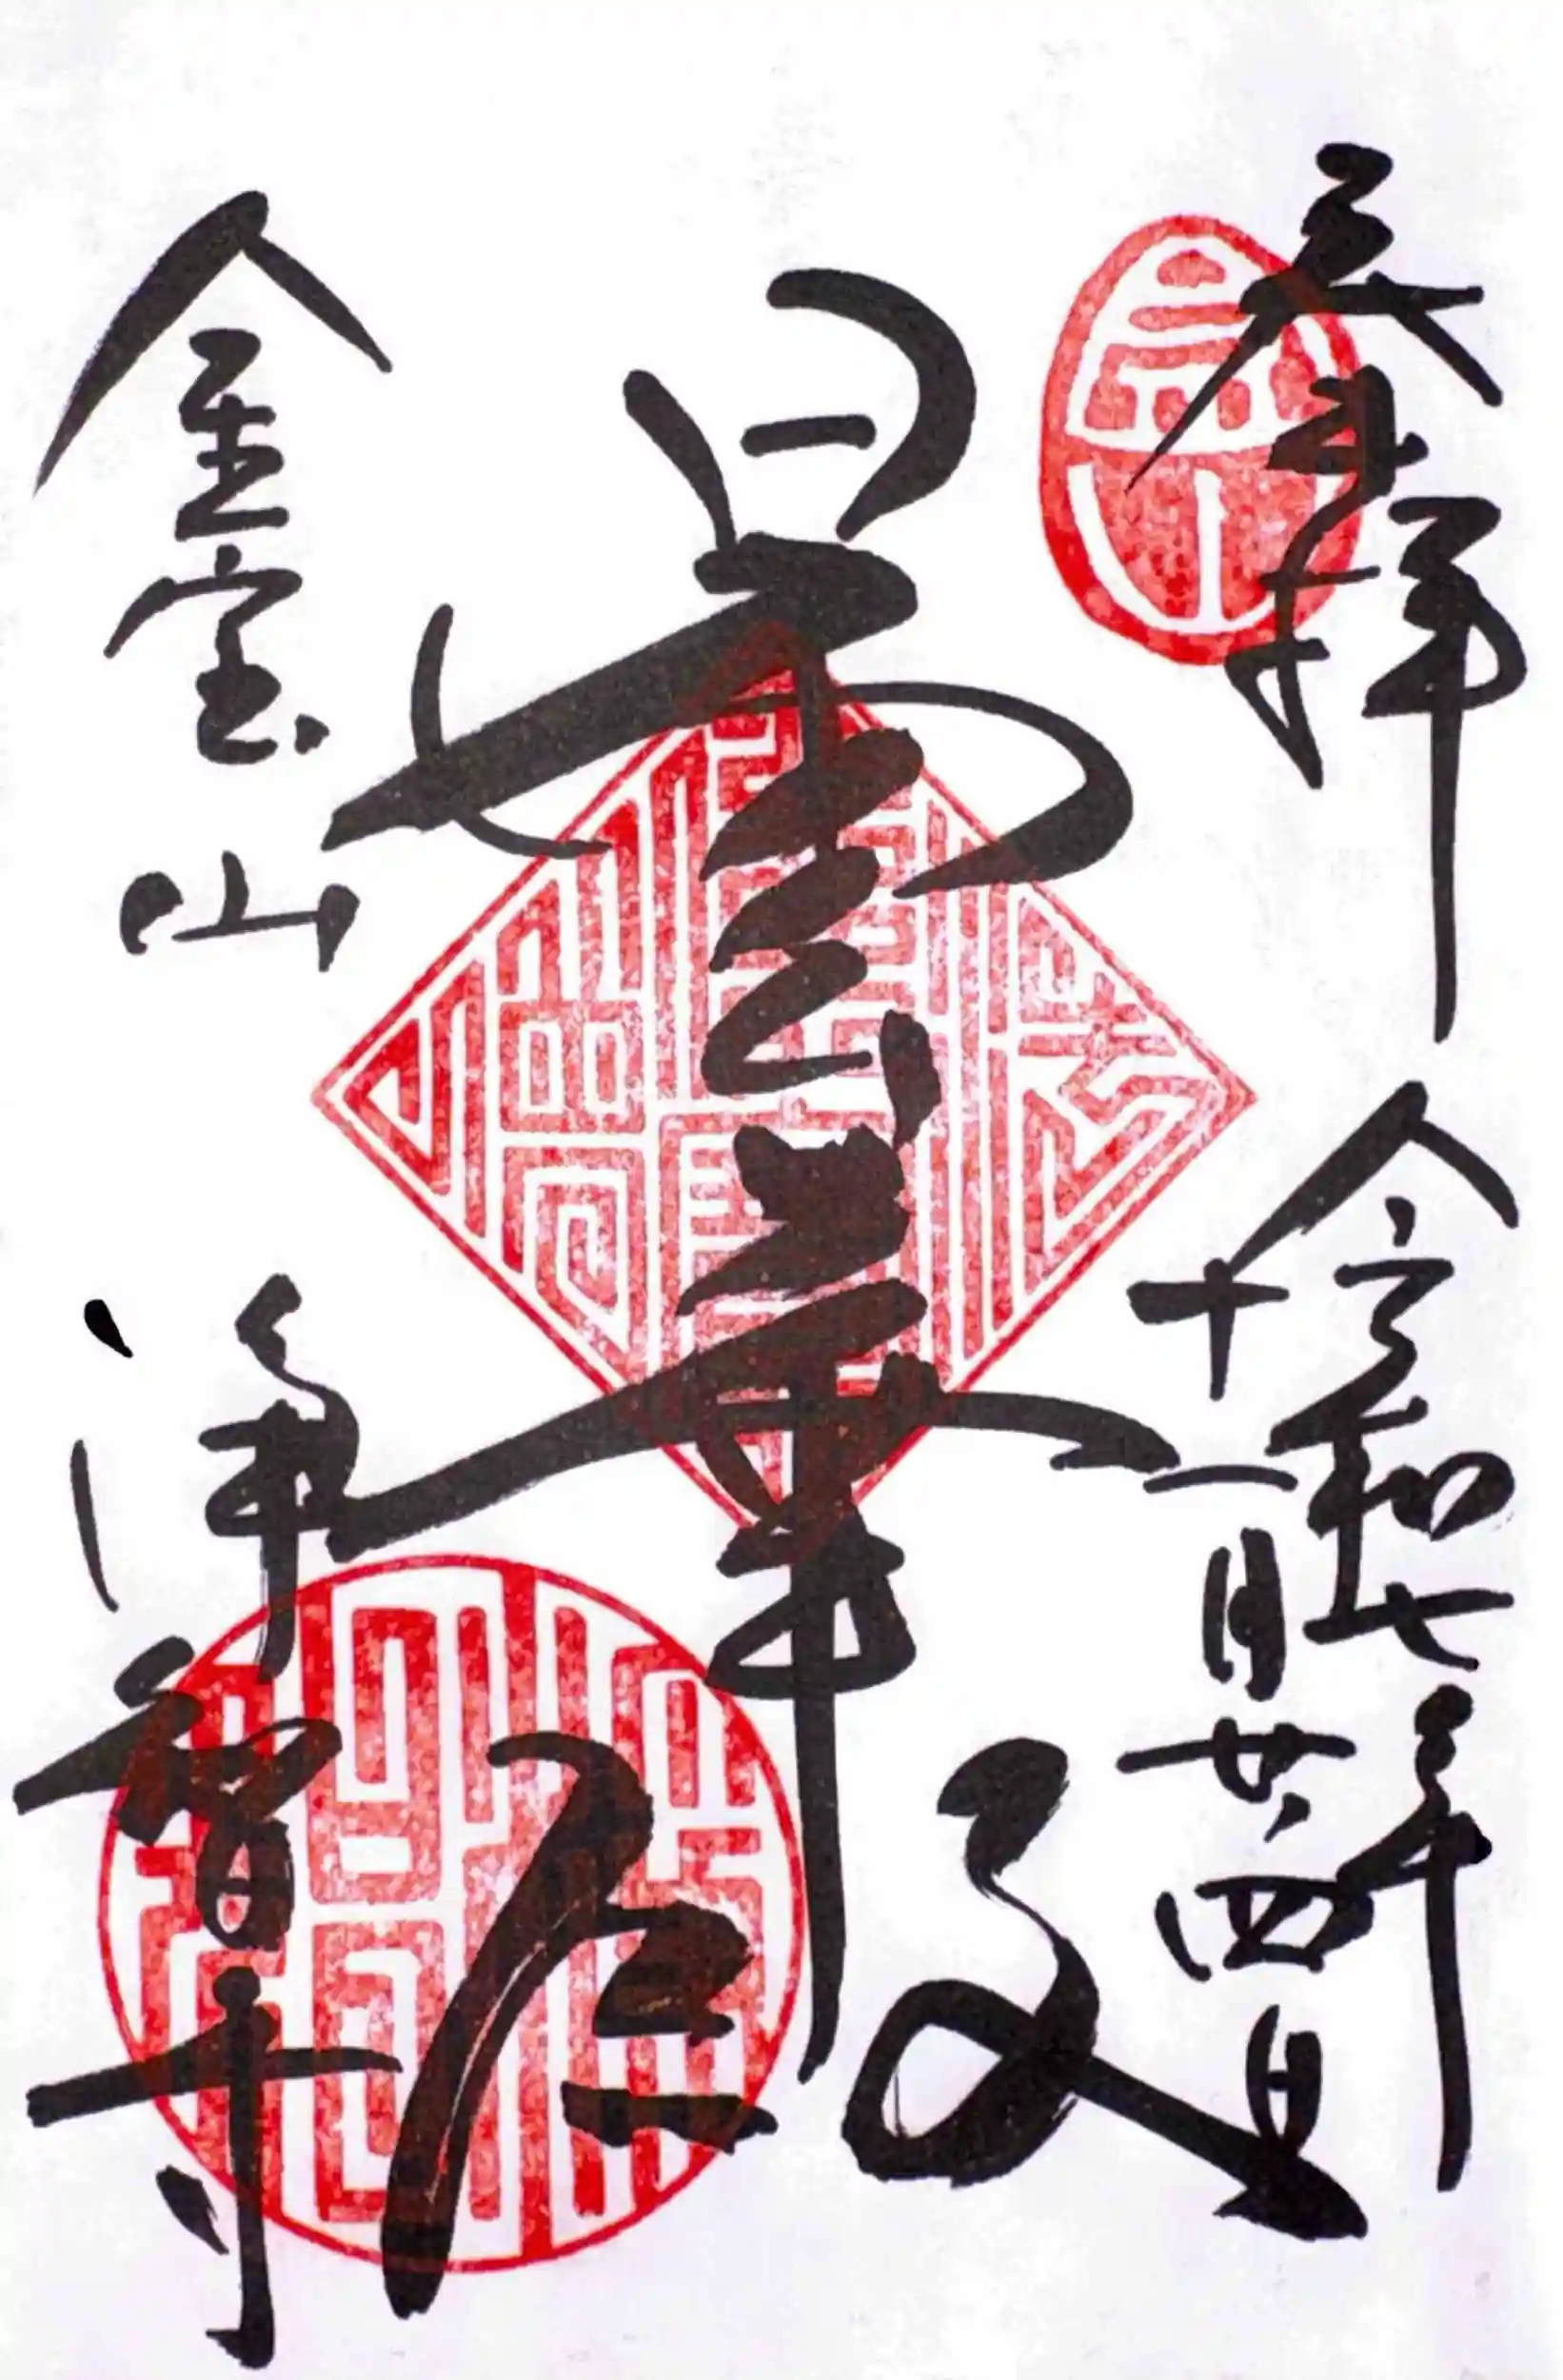 奉拝
令和七年
十一月廿四日
曇華殿
金宝山
浄智寺